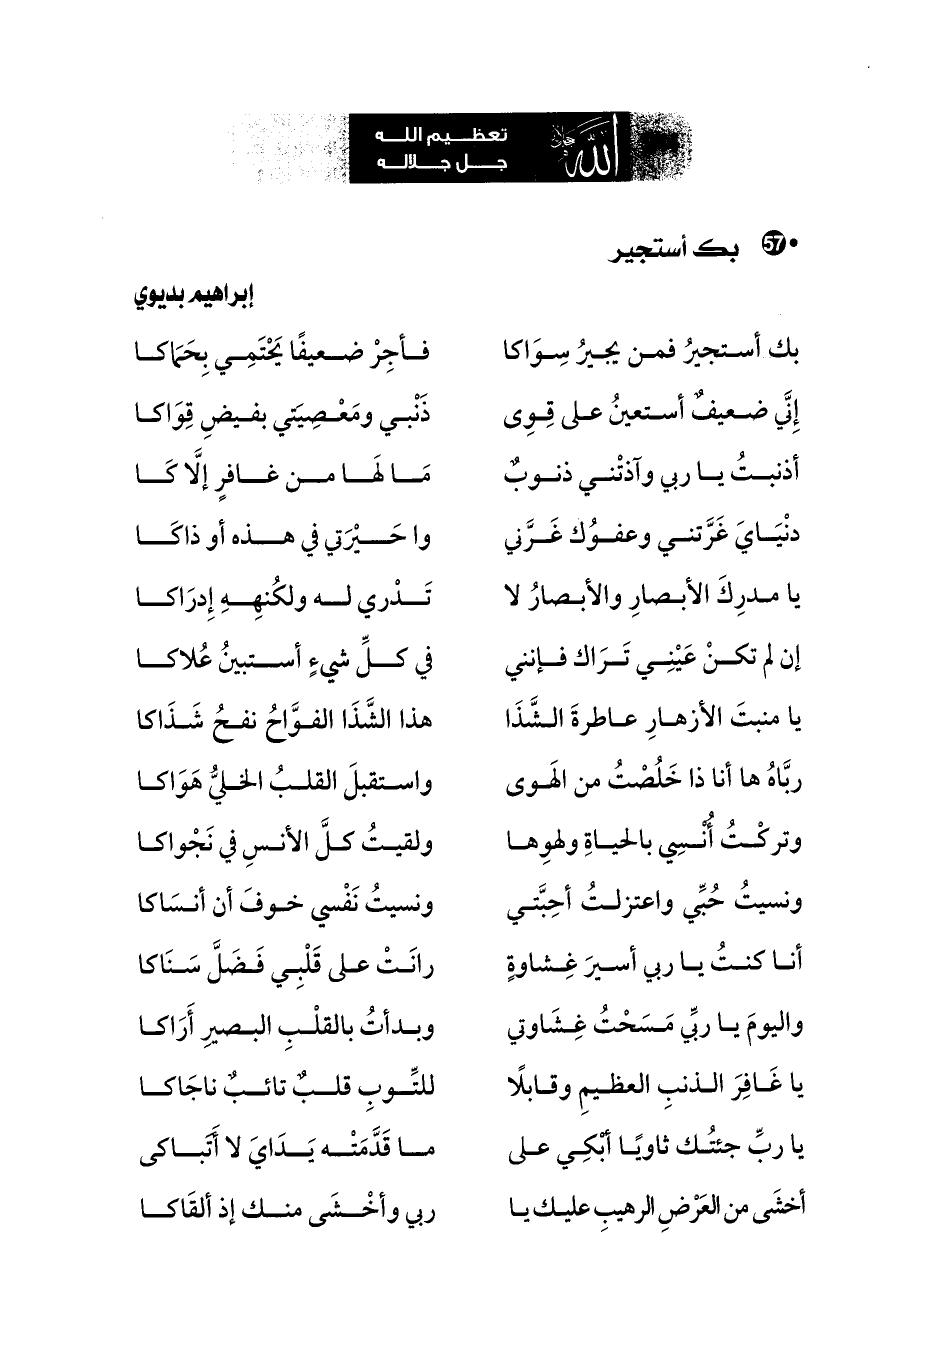 تعظيم الله
جل جلاله
الله
57 بك أستجير
إبراهيم بديوي
بك أستجيرُ فمن يجيرُ سِوَاكا فأجِرْ ضعيفًا يَحْتَمِي بِحَمَاكا
إنِّي ضعيفٌ أستعينُ على قِوى ذَنْبي ومَعْصِيَتي بفيضِ قِوَاكا
أذنبتُ يا ربي وآذتْني ذنوبٌ مَا لَها من غافرٍ إلَّا كَا
دنْيَايَ غَرَّتني وعفوُك غَرَّني وا حَيْرَتي في هذه أو ذاكَا
يا مدرِكَ الأبصارِ والأبصارُ لا تَدْري له ولكُنهِهِ إدرَاكا
إن لم تكنْ عَيْنِي تَرَاك فإنني في كلِّ شيءٍ أستبينُ عُلاكا
يا منبتَ الأزهارِ عاطرةَ الشَّذَا هذا الشَّذَا الفوَّاحُ نفحُ شَذَاكا
ربَّاهُ ها أنا ذا خَلُصْتُ من الهوى واستقبلَ القلبُ الخليُّ هَوَاكا
وتركْتُ أُنْسِي بالحياةِ ولهوِها ولقيتُ كلَّ الأنسِ في نَجْواكا
ونسيتُ حُبِّي واعتزلتُ أحِبَّتي ونسيتُ نَفْسي خوفَ أن أنسَاكا
أنا كنتُ يا ربي أسيرَ غِشاوةٍ رانَتْ على قَلْبِي فَضَلَّ سَنَاكا
واليومَ يا ربِّي مَسَحْتُ غِشَاوتي وبدأتُ بالقلْبِ البصيرِ أَرَاكا
يا غَافِرَ الذنبِ العظيمِ وقابلًا للتَّوبِ قلبٌ تائبٌ ناجَاكا
يا ربِّ جئتُك ثاويًا أبْكِي على ما قَدَّمَتْه يَدَايَ لا أَتَباكى
أخشَى من العَرْضِ الرهيبِ عليك يا ربي وأخْشَى منك إذ ألقَاكا